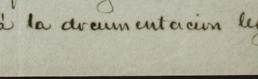 á la documentacion leg